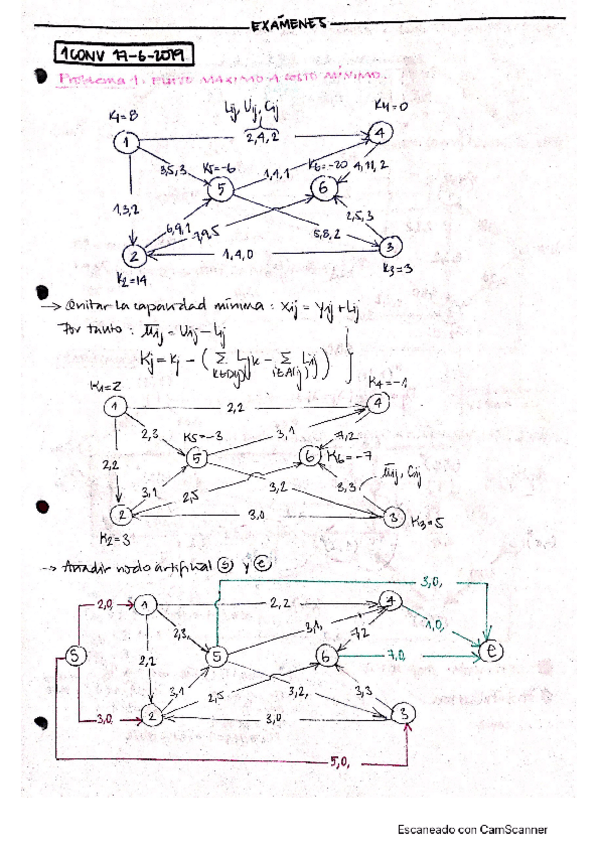 EXÁMENES
1 CONV 17-6-2019
Problema 1. FLUJO MAXIMO A COSTO MINIMO.
Lij, Uij, Cij
K1=8
K4=0
1
2,4,2
4
3,5,3
K5=-6
1,4,1
K6=-20
4,11,2
5
6
1,3,2
6,9,1
7,9,5
5,8,2
2,5,3
2
1,4,0
3
K2=14
K3=3
→ Quitar la capacidad mínima: Xij = Yij + Lij
Por tanto: Uij = Uij - Lij
Kj = Kj - ( Σ Ljk - Σ Lij )
K1=2
K4=-1
1
2,2
4
2,3
K5=-3
3,1
7,2
5
6
K6=-7
2,2
Uij, Cij
3,1
2,5
3,2
3,3
2
3,0
3
K3=5
K2=3
→ Añadir nodo artificial s y e
3,0,
2,0,
1
2,2
4
2,3,
3,1,
7,2
1,0,
S
2,2
5
6
7,0
e
3,1
2,5
3,2,
3,3
3,0,
2
3,0
3
5,0,
Escaneado con CamScanner